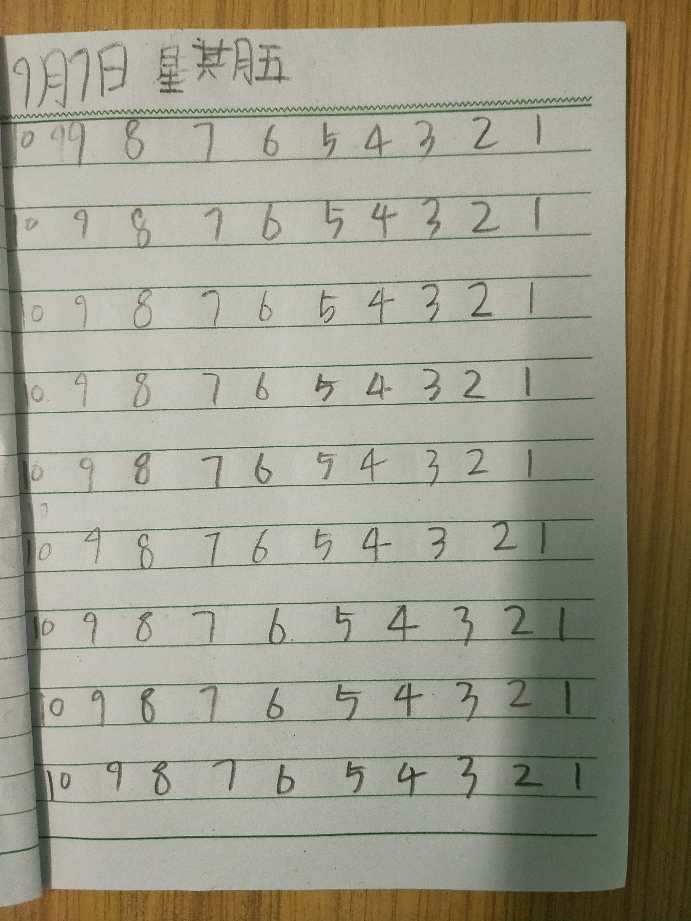 9月7日 星期五
10 9 9 8 7 6 5 4 3 2 1
10 9 8 7 6 5 4 3 2 1
10 9 8 7 6 5 4 3 2 1
10 9 8 7 6 5 4 3 2 1
10 9 8 7 6 5 4 3 2 1
10 9 8 7 6 5 4 3 2 1
10 9 8 7 6 5 4 3 2 1
10 9 8 7 6 5 4 3 2 1
10 9 8 7 6 5 4 3 2 1